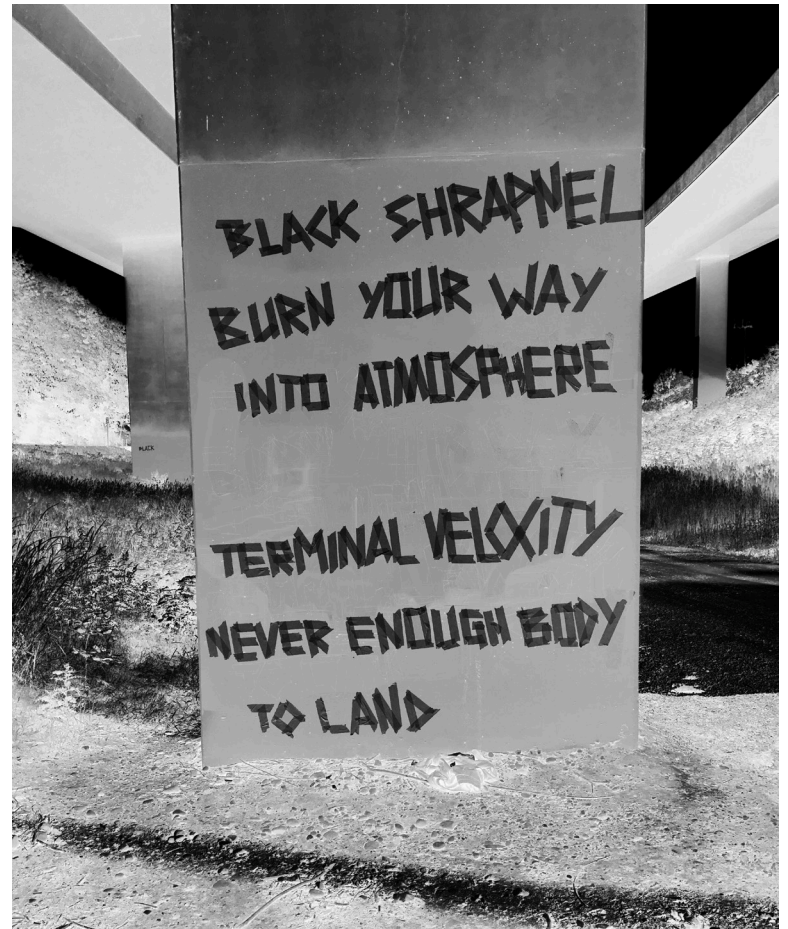 BLACK SHRAPNEL
BURN YOUR WAY
INTO ATMOSPHERE
TERMINAL VELOCITY
NEVER ENOUGH BODY
TO LAND
BLACK